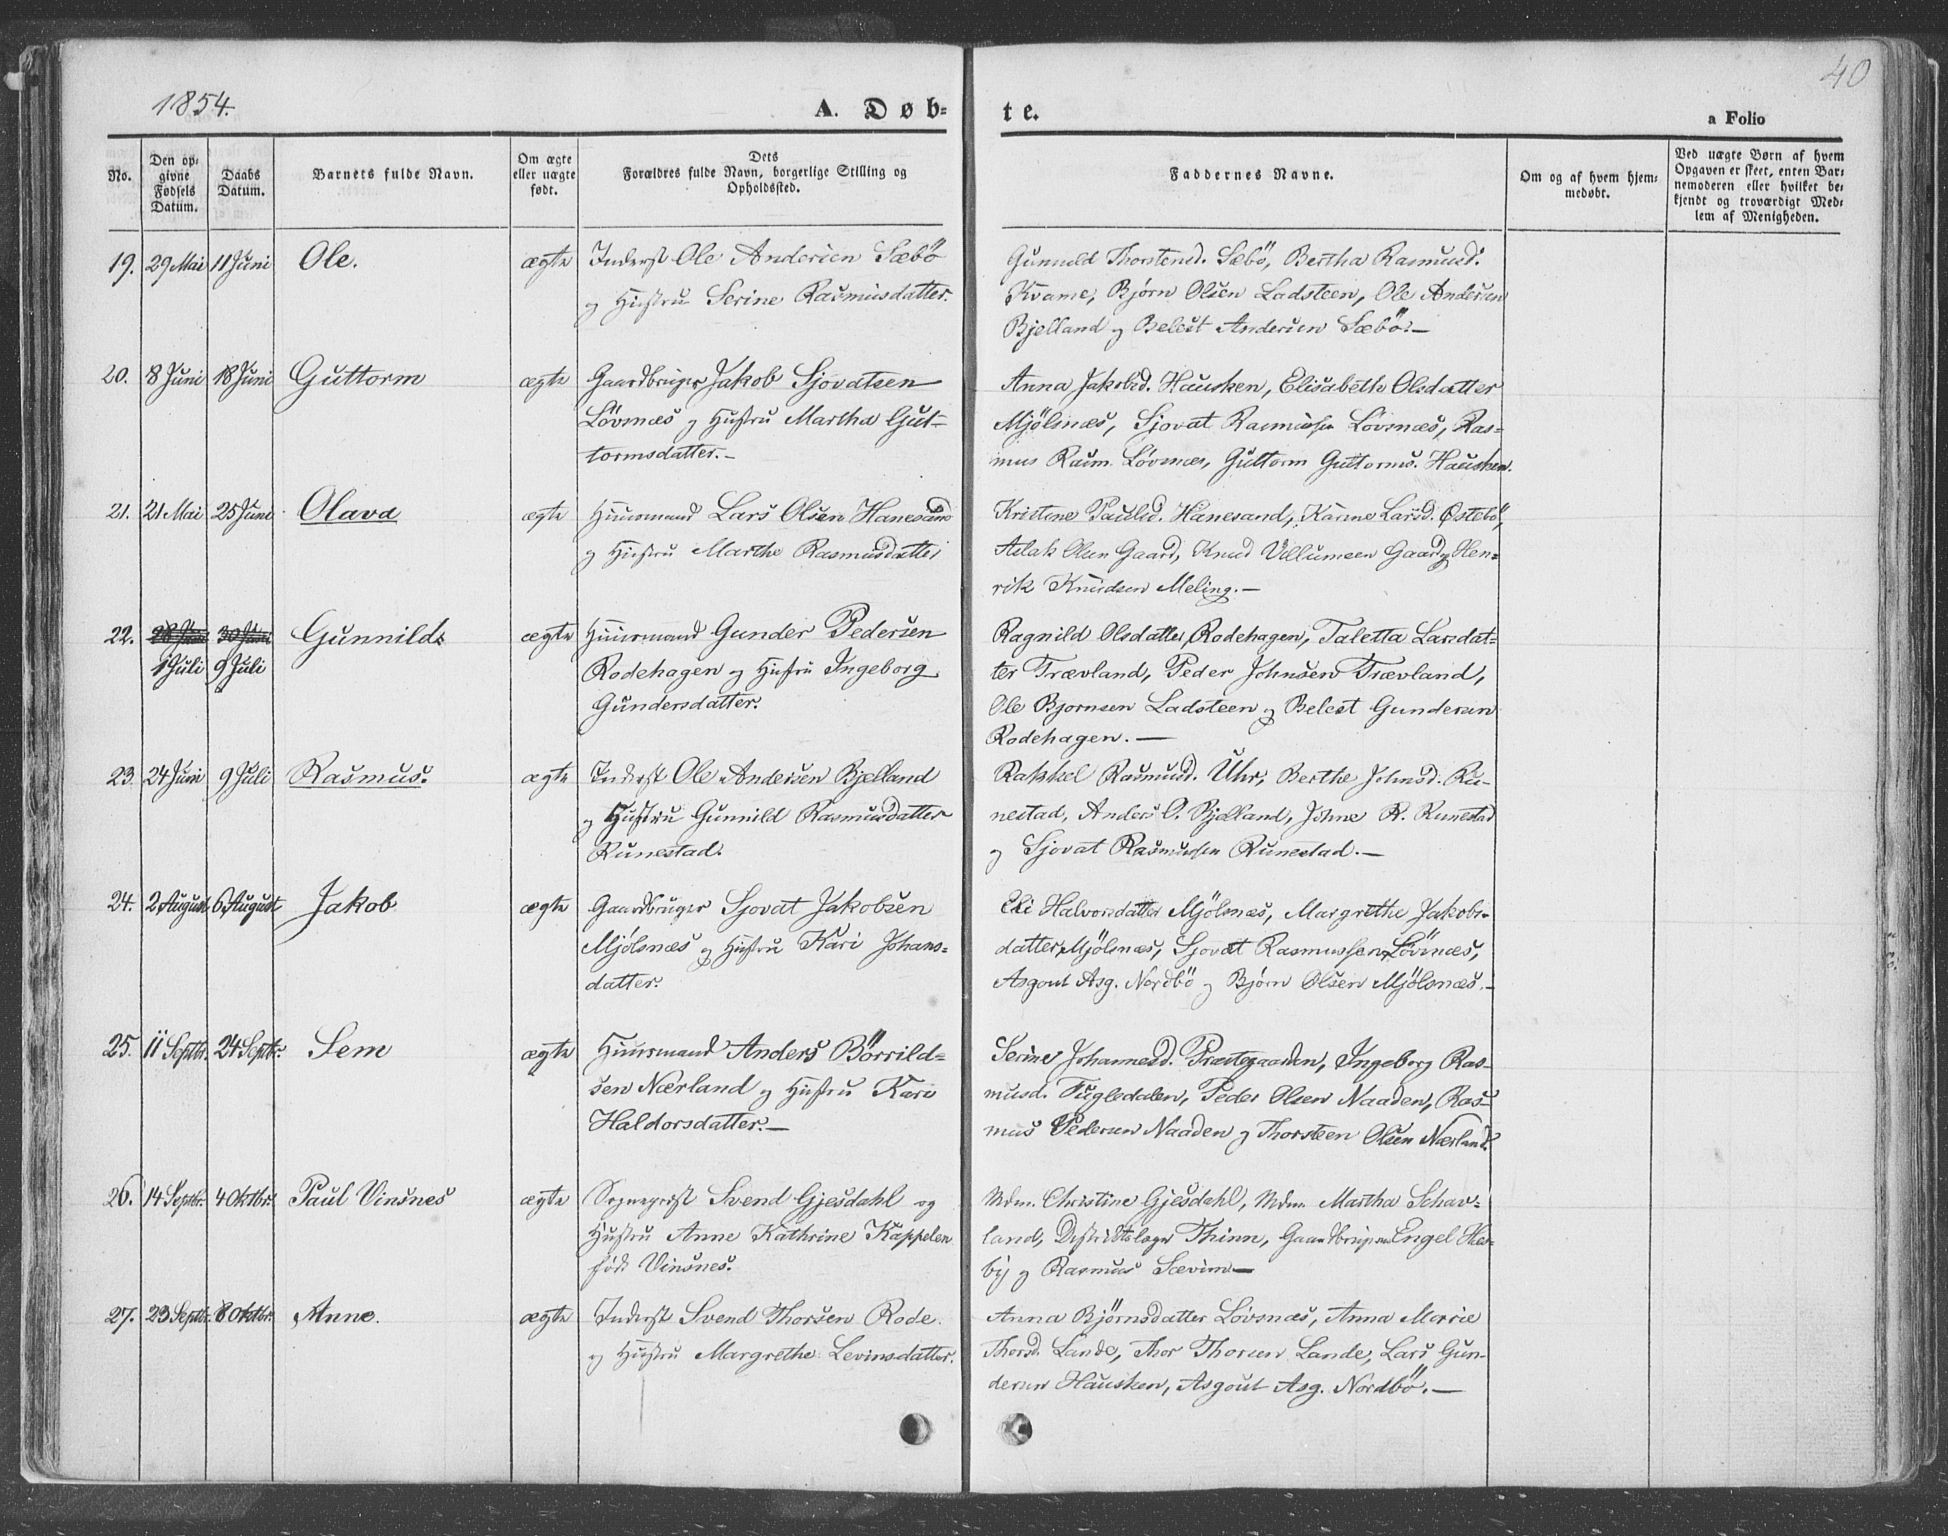 1854.
A. Døb-
te.
40
a Folio
No.
Den op-
givne
Fødsels
Datum.
Daabs
Datum.
Barnets fulde Navn.
Om ægte
eller uægte
født.
Dets
Forældres fulde Navn, borgerlige Stilling og
Opholdssted.
Faddernes Navne.
Om og af hvem hjem-
medøbt.
Ved uægte Børn af hvem
Opgaven er skeet, enten Bar-
nemoderen eller hvilket be-
kjendt og troværdigt Med-
lem af Menigheden.
19. 29 Mai 11 Juni Ole. ægte Inderst Ole Andersen Sæbö
og Hustru Serine Rasmusdatter.
Gunnild Thorstensd. Sæbö, Bertha Rasmusd.
Kvame, Bjørn Olsen Ladsteen, Ole Andersen
Bjelland og Belest Andersen Sæbö.—
20. 8 Juni 18 Juni Guttorm ægte Gaardbruger Jakob Sjovatsen
Lövsnæs og Hustru Martha Gut-
tormsdatter.—
Anna Jakobsd. Hausken, Elisabeth Olsdatter
Mjölsnæs, Sjovat Rasmussen Lövsnæs, Ras-
mus Rasm. Lövsnæs, Guttorm Guttorms. Hausken.
21. 21 Mai 25 Juni Olava ægte Huusmand Lars Olsen Hanesand
og Hustru Marthe Rasmusdatter
Kristine Paulsd. Hanesand, Karine Larsd. Østebö,
Aslak Olsen Gaard, Knud Villumsen Gaard og Hen-
rik Knudsen Meling.—
22. 28 Juni 30 Juni Gunnild ægte Huusmand Gunder Pedersen
1 Juli 9 Juli
Rodehagen og Hustru Ingeborg
Gundersdatter.
Ragnild Olsdatter Rodehagen, Taletta Larsdat-
ter Trævland, Peder Johnsen Trævland,
Ole Bjornsen Ladsteen og Belest Gundersen
Rodehagen.—
23. 24 Juni 9 Juli Rasmus. ægte Inderst Ole Andersen Bjelland
og Hustru Gunnild Rasmusdatter
Runestad.
Rakkel Rasmusd. Uhr, Berthe Johnsd. Ru-
nestad, Anders O. Bjelland, Johne R. Runestad
og Sjovat Rasmussen Runestad.—
24. 2 August 6 August Jakob ægte Gaardbruger Sjovat Jakobsen
Mjölsnæs og Hustru Kari Johans-
datter.
Eli Halvorsdatter Mjölsnæs, Margrethe Jakobs-
datter Mjölsnæs, Sjovat Rasmussen Lövsnæs,
Asgout Asg. Nordbö og Bjørn Olsen Mjölsnæs.—
25. 11 Septbr. 24 Septbr. Sem ægte Huusmand Anders Börrild-
sen Nærland og Hustru Kari
Haldorsdatter.—
Serine Johannesd. Præstegaarden, Ingeborg Ras-
musd. Fugledalen, Peder Olsen Naaden, Ras-
mus Pedersen Naaden og Thorsteen Olsen Nærland.
26. 14 Septbr. 4 Oktbr. Paul Vinsnes ægte Sogneprest Svend Gjesdahl og
Hustru Anne Kathrine Kappelen
født Vinsnes.
Mdm. Christine Gjesdahl, Mdm. Martha Schav-
land, Distriktslæge Thinn, Gaardbrugerne Engel Hes-
by og Rasmus Sævim—
27. 23 Septbr. 8 Oktbr. Anne. ægte Inderst Svend Thorsen Rode.
og Hustru Margrethe Levinsdatter.
Anna Bjørnsdatter Lövsnæs, Anna Marie
Thorsd. Lande, Thor Thorsen Lande, Lars Gun-
dersen Hausken, Asgout Asg. Nordbö.—